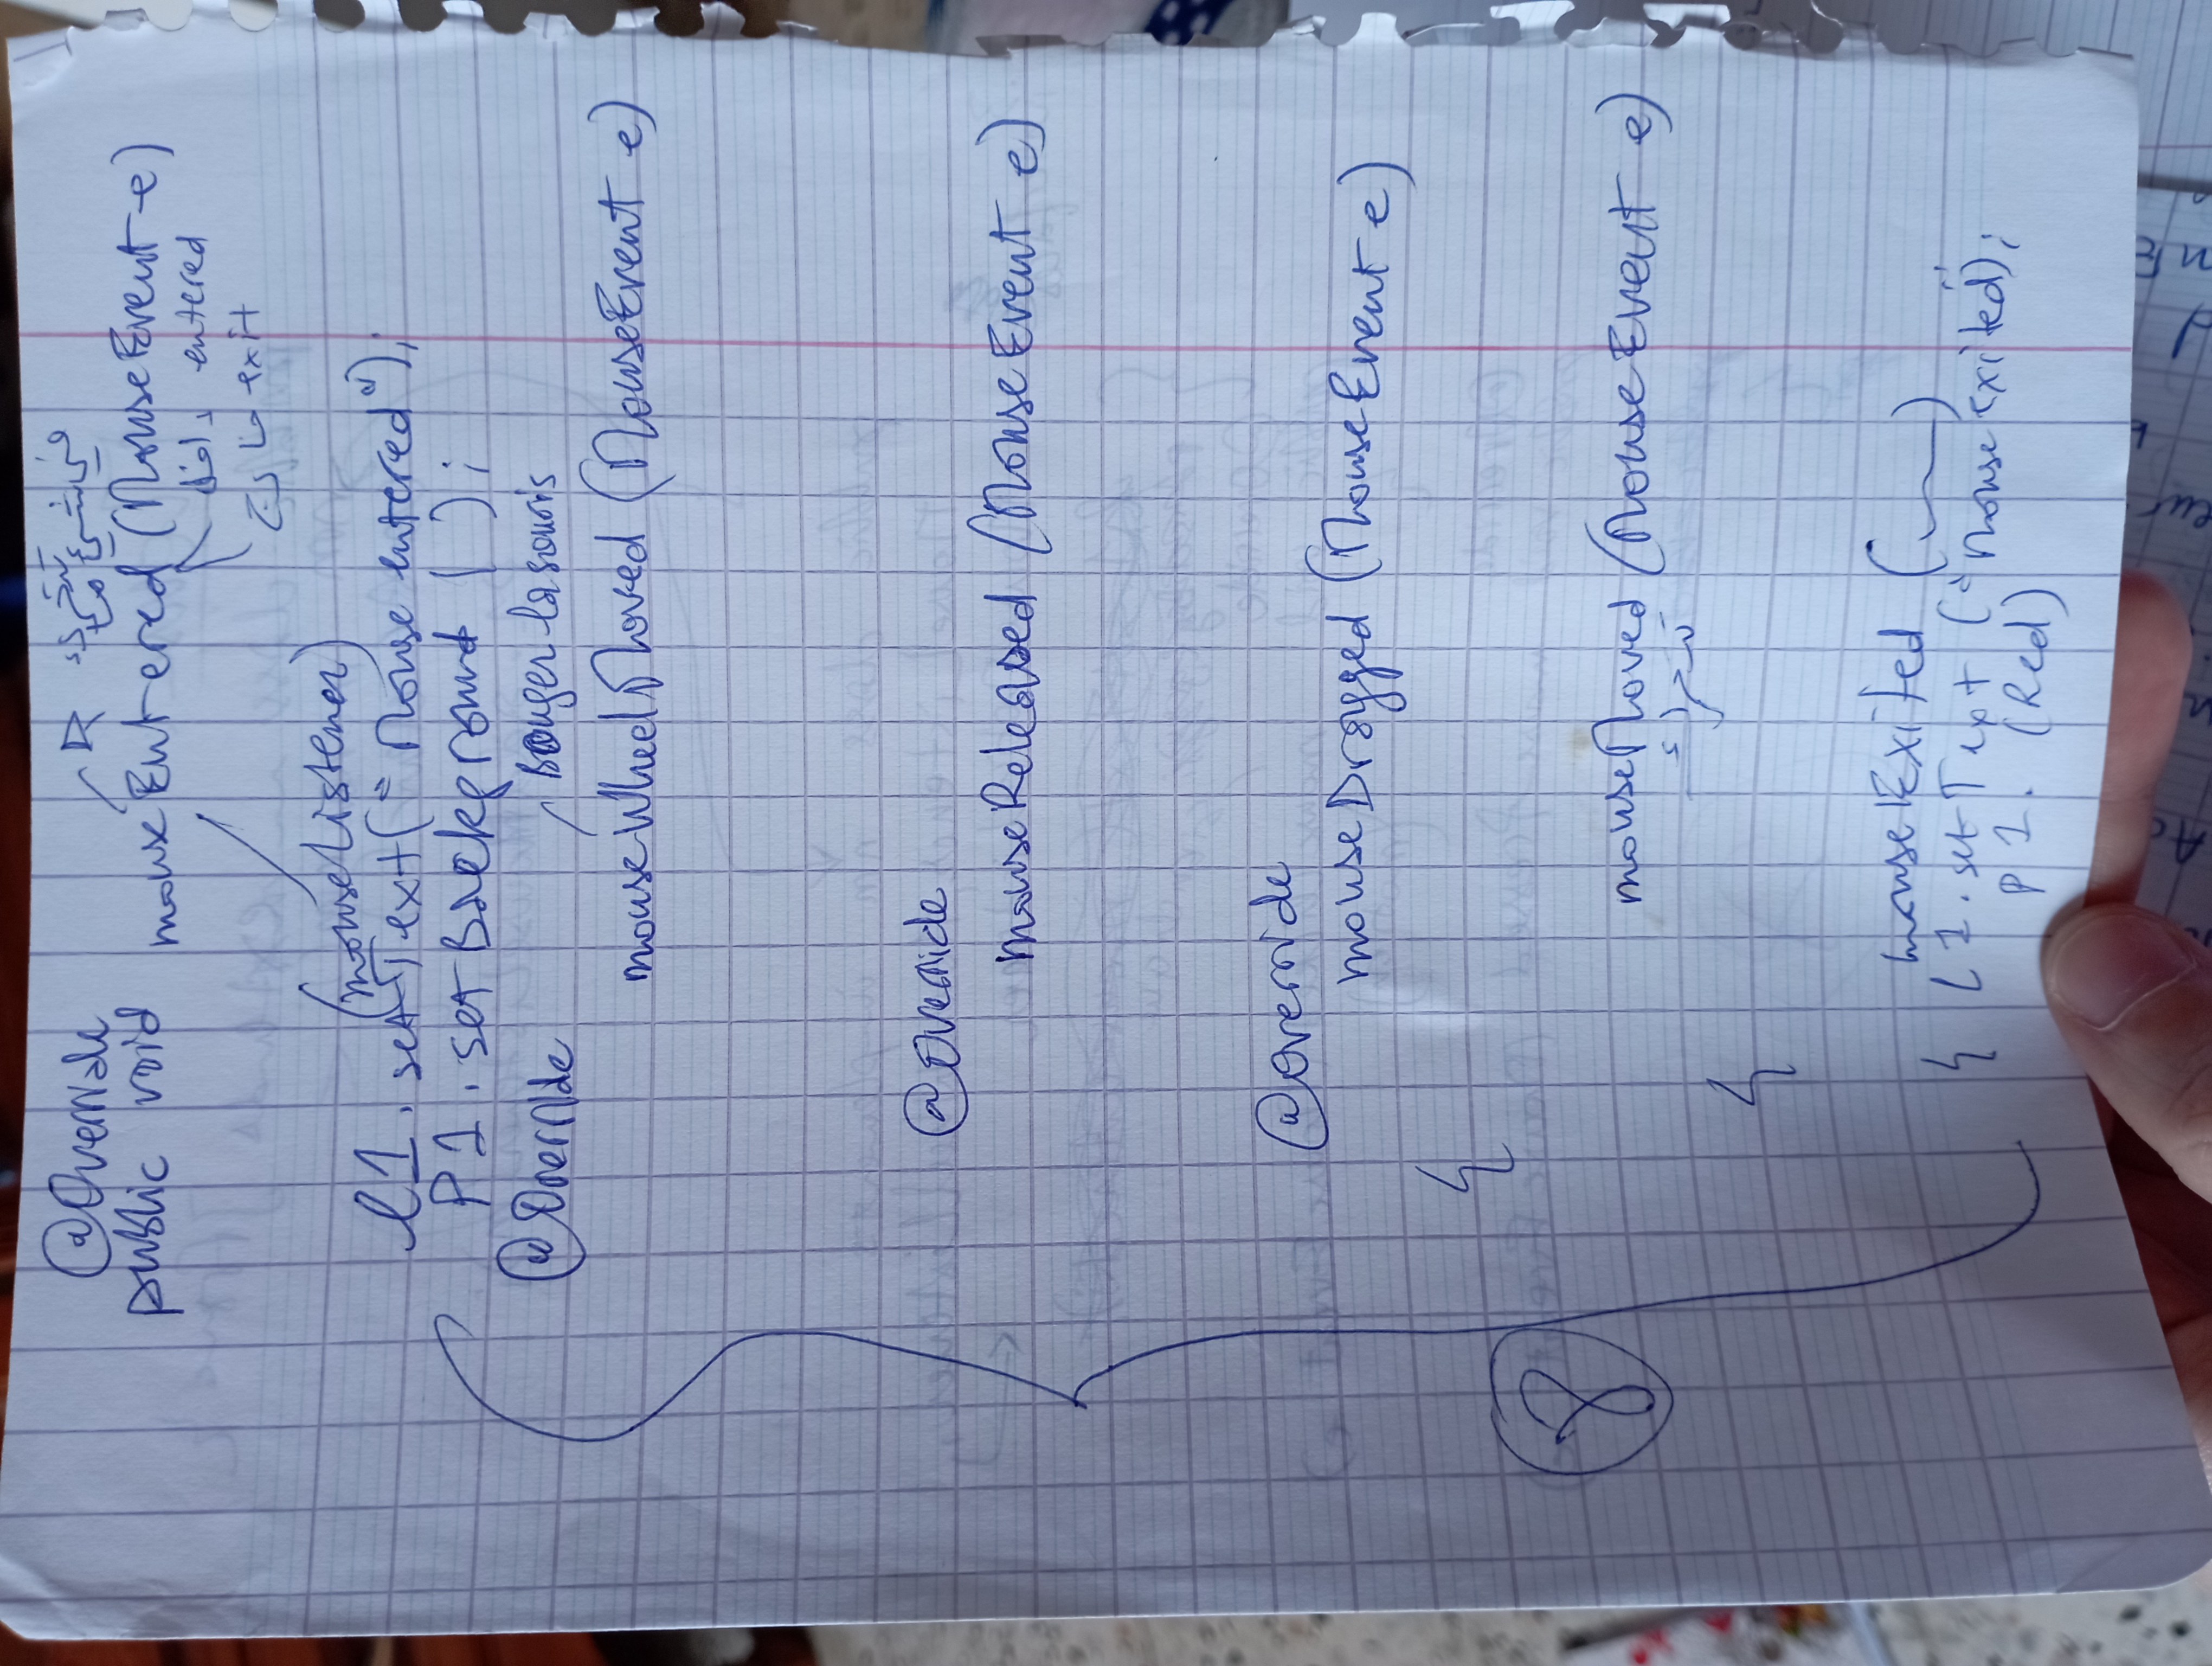 @Override
في شيئ تتحرك
public void mouseEntered (MouseEvent e)
داخل entered
خارج exit
(mouseListener)
l1. setText("Mouse entered");
P1. setBackground ( );
@Override
Bouger la souris
mouseWheelMoved (MouseEvent e)
@Override
mouseReleased (MouseEvent e)
@override
mouseDragged (MouseEvent e)
{
8
mouseMoved (MouseEvent e)
تتحرك
{
mouseExited ( )
{ l1. setText ("Mouse exited");
P1. (Red)